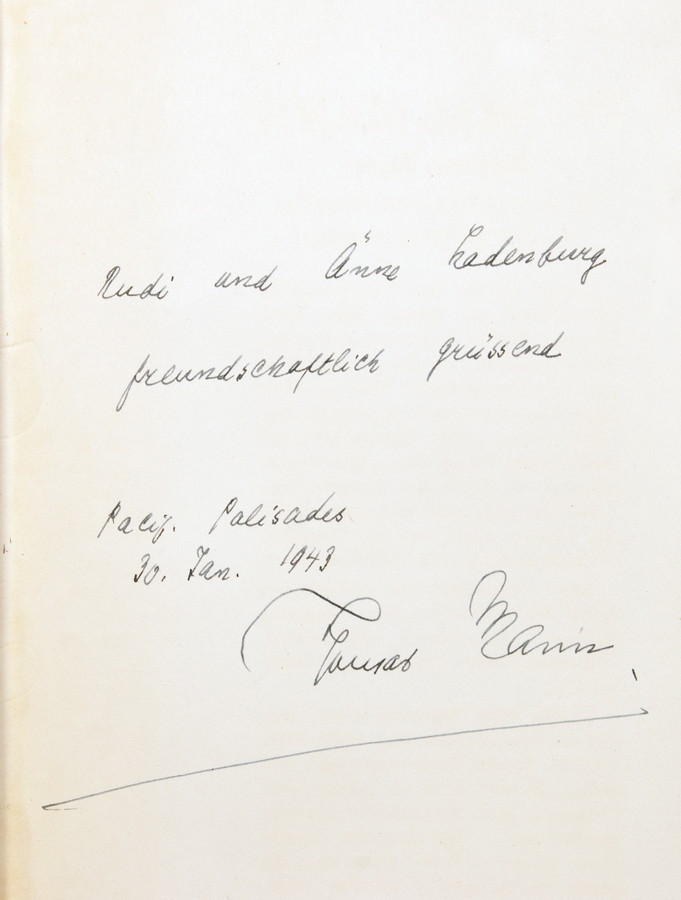 Rudi und Änne Ladenburg
freundschaftlich grüssend
Pacif. Palisades
30. Jan. 1943
Thomas Mann